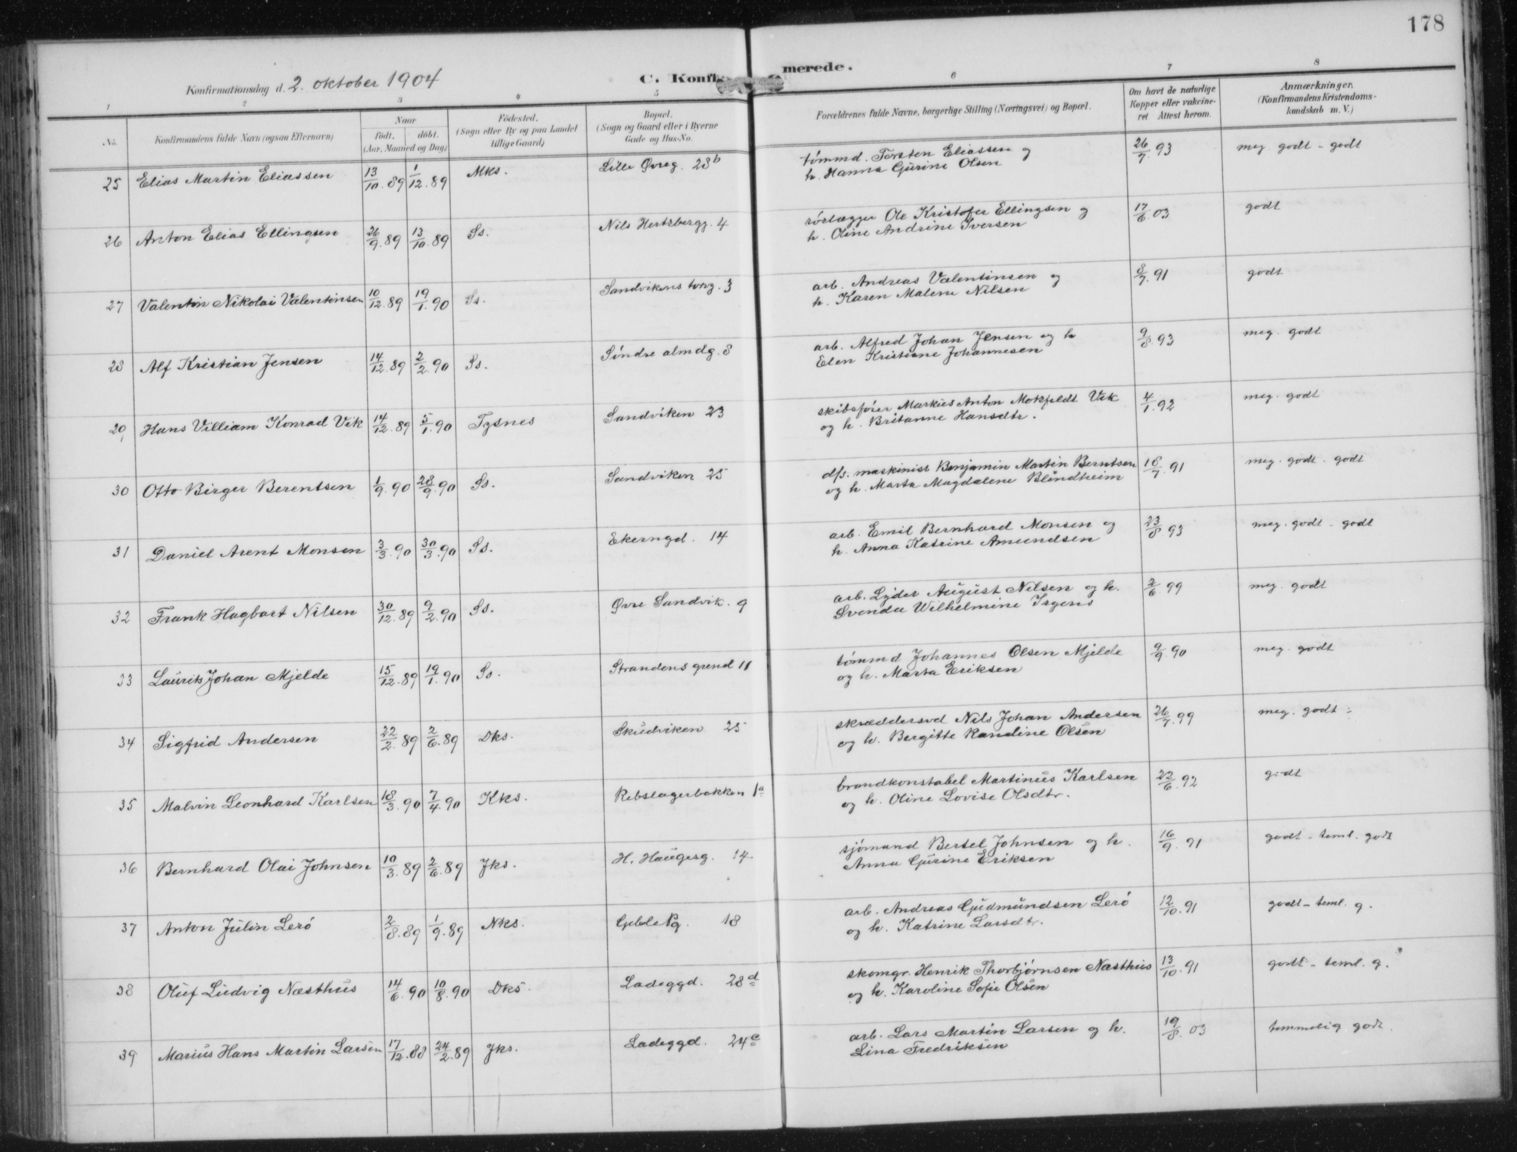 178
Konfirmationsdag d. 2. oktober 1904
C. Konfirmerede.
1 2 3 4 5 6 7 8
No. Konfirmandens fulde Navn (ogsaa Efternavn)
Naar
født. døbt.
(Aar, Maaned og Dag)
Fødested.
(Sogn eller By og paa Landet
tillige Gaard)
Bopæl.
(Sogn og Gaard eller i Byerne
Gade og Hus-No.
Forældrenes fulde Navne, borgerlige Stilling (Næringsvei) og Bopæl.
Om havt de naturlige
Kopper eller vakcine-
ret Attest herom.
Anmærkninger.
(Konfirmandens Kristendoms-
kundskab m. V.)
25 Elias Martin Eliassen 13/10.89 1/12.89 Mks. Lille Øvreg. 28b tømmd. Torsten Eliassen og 26/7 93 meg godt - godt
h. Hanna Gurine Olsen
26 Anton Elias Ellingsen 26/9.89 13/10 89 Ss. Nils Hertzbergg. 4 rørlægger Ole Kristofer Ellingsen og 17/6 03 godt
h. Oline Andrine Iversen
27 Valentin Nikolai Valentinsen 10/12.89 19/1.90 Ss. Sandvikens torg. 3 arb. Andreas Valentinsen og 8/7.91 godt
h. Karen Malene Nilsen
28 Alf Kristian Jensen 14/12.89 2/2.90 Ss. Søndre almdg. 8 arb. Alfred Johan Jensen og h 9/8 93 meg. godt
Elen Kristiane Johannesen
29 Hans Villiam Konrad Vik 14/12.89 5/1.90 Tysnes Sandviken 23 skibsfører Markus Anton Motzfeldt Vik 4/1.92 meg. godt
og h. Britanne Hansdtr.
30 Otto Birger Berentsen 1/9.90 28/9.90 Ss. Sandviken 25 dfs. maskinist Benjamin Martin Berntsen 18/7 91 meg. godt. godt
og h. Marta Magdalene Blindtheim
31 Daniel Arent Monsen 3/3.90 30/3.90 Ss. Ekerngd. 14 arb. Emil Bernhard Monsen og 23/8 93 meg. godt - godt
h. Anna Katrine Amundsen
32 Frank Hagbart Nilsen 30/12.89 9/2.90 Ss. Øvre Sandvik. 9 arb. Lyder August Nilsen og h. 2/6 99 meg. godt
Svenda Wilhelmine Irgens
33 Laurits Johan Mjelde 15/12.89 19/1.90 Ss. Strandens grend 11 tømmd Johannes Olsen Mjelde 9/9 90 meg. godt
og h. Marta Eriksen
34 Sigfrid Andersen 22/2.89 2/6.89 Dks. Skudviken 25 skræddersvd Nils Johan Andersen 26/7 99 meg. godt
og h. Bergitte Randine Olsen
35 Malvin Leonhard Karlsen 18/3.90 7/4.90 Kks. Rebslagerbakken 1a brandkonstabel Martinus Karlsen 22/6.92 godt
og h. Oline Lovise Olsdtr.
36 Bernhard Olai Johnsen 10/3.89 2/6.89 Jks. H. Haugesg. 14. sjømand Bertel Johnsen og h. 16/9.91 godt - teml. godt
Anna Gurine Eriksen
37 Anton Julin Lerö 2/8.89 1/9.89 Nks. Geble Pg. 18 arb. Andreas Gudmundsen Lerö 12/10.91 godt - teml. g.
og h. Katrine Larsdtr.
38 Oluf Ludvig Næsthus 14/6.90 10/8.90 Dks. Ladeggd. 28d skomgr. Henrik Thorbjørnsen Næsthus 13/10.91 godt - teml. g.
og h. Karoline Sofie Olsen
39 Marius Hans Martin Larsen 17/12.88 24/2.89 Jks. Ladeggd. 24c arb. Lars Martin Larsen og h. 19/8.03 temmelig godt.
Lina Fredriksen